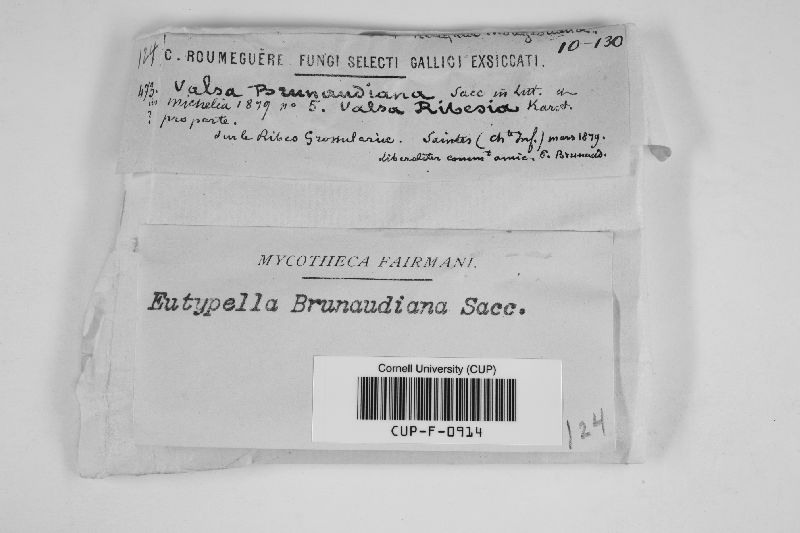 10-130
124
C. ROUMEGUÈRE. FUNGI SELECTI GALLICI EXSICCATI.
473. Valsa Brunaudiana Sacc in Litt. &
in Michelia 1879 no 5. Valsa Ribesia Karst.
? pro parte.
Sur le Ribes Grossulariae. Saintes (Chte Inf.) mars 1879.
liberaliter commt amic. E. Brunaud.
MYCOTHECA FAIRMANI.
Eutypella Brunaudiana Sacc.
Cornell University (CUP)
CUP-F-0914
124